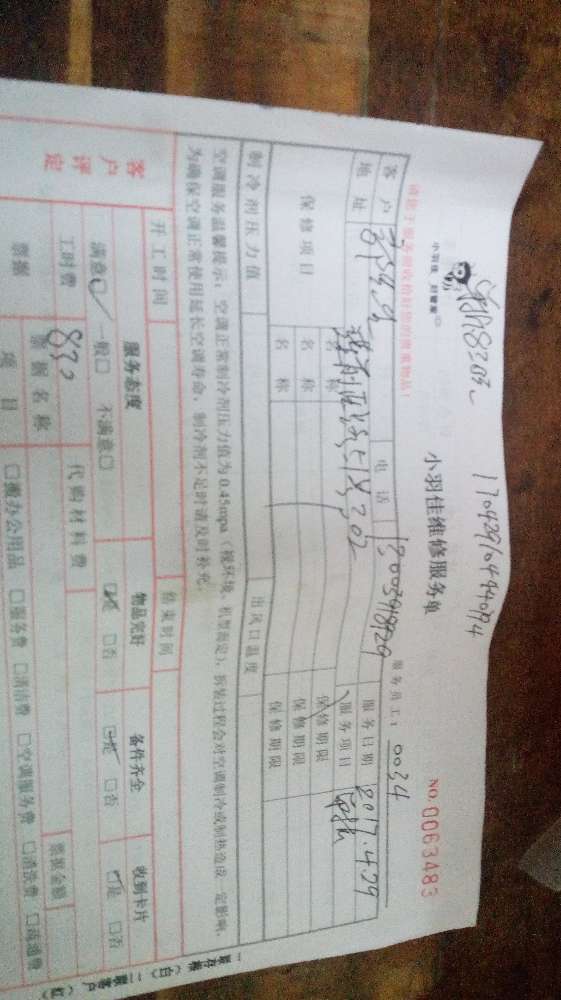 170429104440914
小羽佳 即管家
小羽佳维修服务单
NO.0063483
请您于服务前收拾好您的贵重物品!
服务员工: 0034
客户
电话
服务日期 2017.4.29
地址
服务项目
保修项目 名称 保修期限
名称 保修期限
名称 保修期限
制冷剂压力值 出风口温度
空调服务温馨提示:空调正常制冷剂压力值为0.45mpa(视环境、机型而定),拆装过程会对空调制冷或制热造成一定影响,
为确保空调正常使用延长空调寿命,制冷剂不足时请及时补充。
开工时间 结束时间
客户评定 服务态度 物品完好 备件齐全 收到卡片
满意□ 一般□ 不满意□ □是 □否 □是 □否 □是 □否
工时费 830 代购材料费
票据 票据名称 票据金额
项目 □搬办公用品 □服务费 □清洁费 □空调服务费 □清洗费 □疏通费
一联存根(白) 二联客户(红)